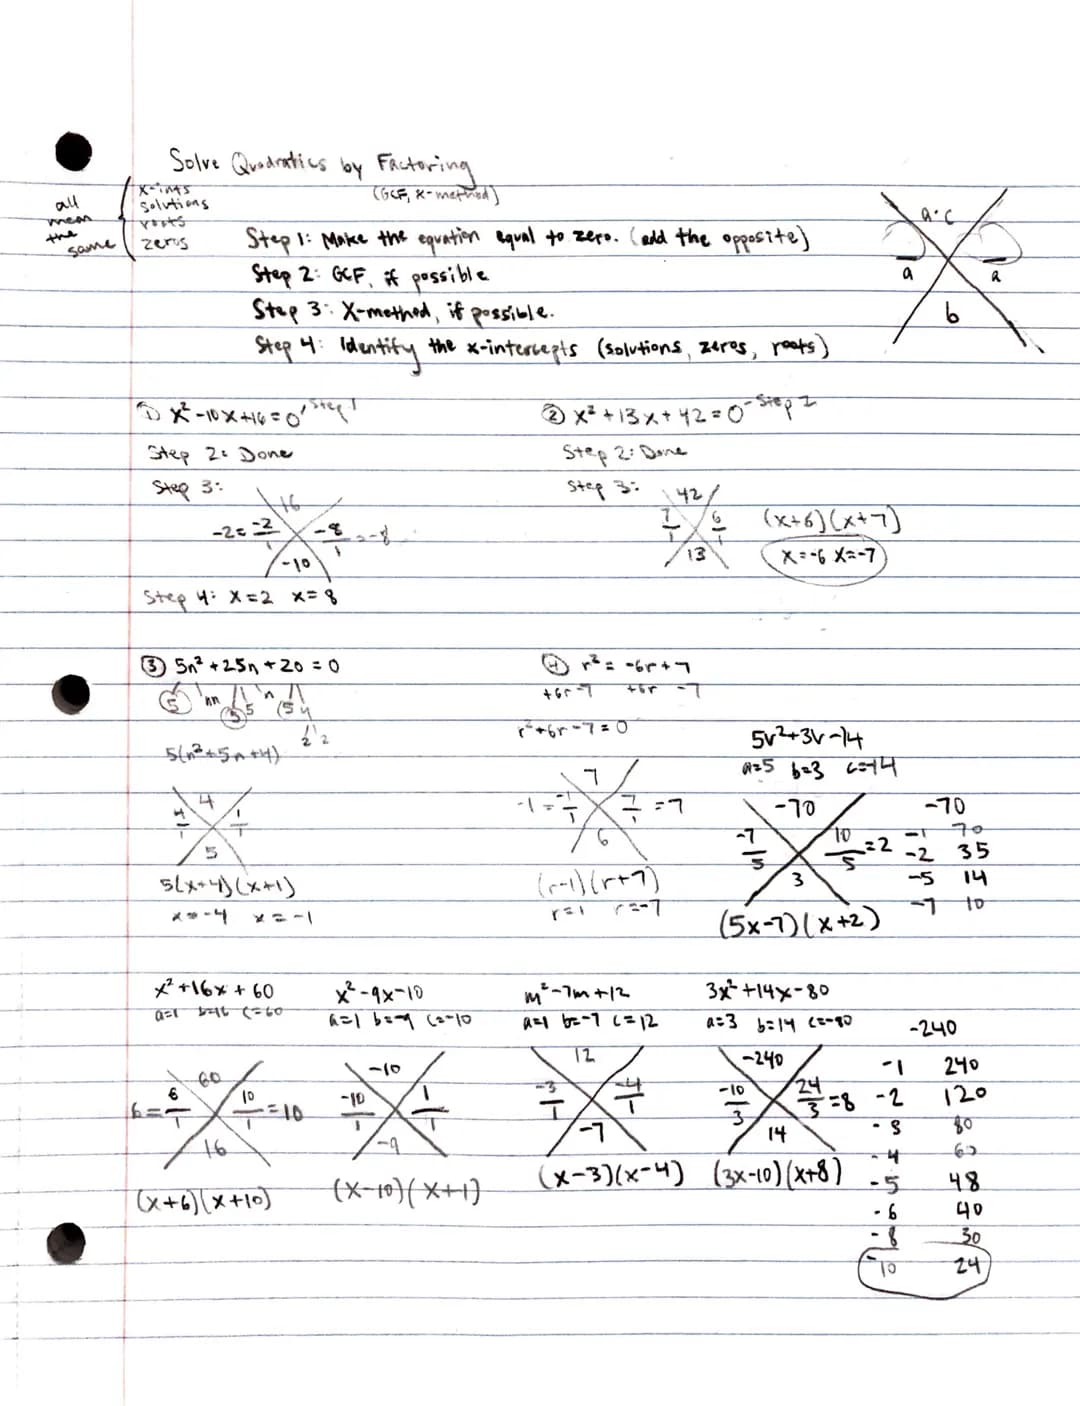 Solve Quadratics by Factoring
(GCF, X-method)
all mean the same
x-ints
solutions
roots
zeros
Step 1: Make the equation equal to zero. (add the opposite)
Step 2: GCF, if possible
Step 3: X-method, if possible.
Step 4: Identify the x-intercepts (solutions, zeros, roots)
a·c
a a
b
① x² -10x+16=0 Step 1
Step 2: Done
Step 3:
16
-2= -2/1 -8/1 =-8
-10
Step 4: x=2 x=8
② x² +13x+42=0 - Step 1
Step 2: Done
Step 3:
42
7/1 6/1
13
(x+6)(x+7)
x=-6 x=-7
③ 5n² +25n +20 = 0
5 nn 5 5 n 5 4
2 2
5(n²+5n+4)
4
4/1 1/1
5
5(x+4)(x+1)
x=-4 x=-1
④ r² = -6r+7
+6r-7 +6r -7
r²+6r-7=0
7
-1 = -1/1 7/1 =7
6
(r-1)(r+7)
r=1 r=-7
5v²+3v-14
a=5 b=3 c=-14
-70
-7/5 10/5 =2
3
(5x-7)(x+2)
-70
-1 70
-2 35
-5 14
-7 10
x² +16x + 60
a=1 b=16 c=60
60
6= 6/1 10/1 =10
16
(x+6)(x+10)
x² -9x-10
a=1 b=-9 c=-10
-10
-10/1 1/1
-9
(x-10)(x+1)
m²-7m+12
a=1 b=-7 c=12
12
-3/1 -4/1
-7
(x-3)(x-4)
3x² +14x-80
a=3 b=14 c=-80
-240
-10/3 24/3 =8
14
(3x-10)(x+8)
-240
-1 240
-2 120
-3 80
-4 60
-5 48
-6 40
-8 30
-10 24